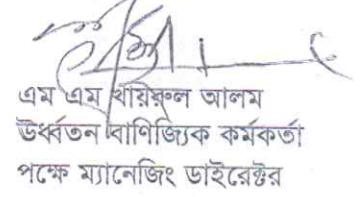 এম এম খায়রুল আলম
ঊর্ধ্বতন বাণিজ্যিক কর্মকর্তা
পক্ষে ম্যানেজিং ডাইরেক্টর